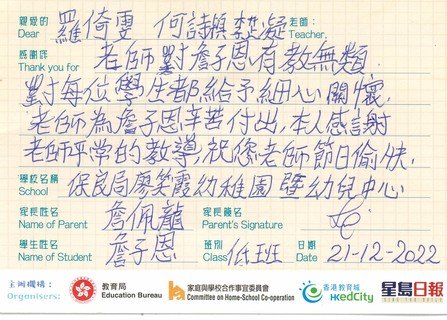 親愛的 羅倚雯 何詩韻 凝 老師：
Dear Teacher,
感謝您 老師對詹子恩有教無類
Thank you for
對每位學生都給予細心關懷,
老師為詹子恩辛苦付出,本人感謝
老師平常的教導,祝您老師節日愉快.
學校名稱 保良局廖笑霞幼稚園暨幼兒中心
School
家長姓名 詹佩龍 家長簽名
Name of Parent Parent's Signature
學生姓名 詹子恩 班別 低班 日期 21-12-2022
Name of Student Class Date
主辦機構： 教育局 家庭與學校合作事宜委員會 香港教育城 星島日報
Organisers: Education Bureau Committee on Home-School Co-operation HKedCity SING TAO DAILY